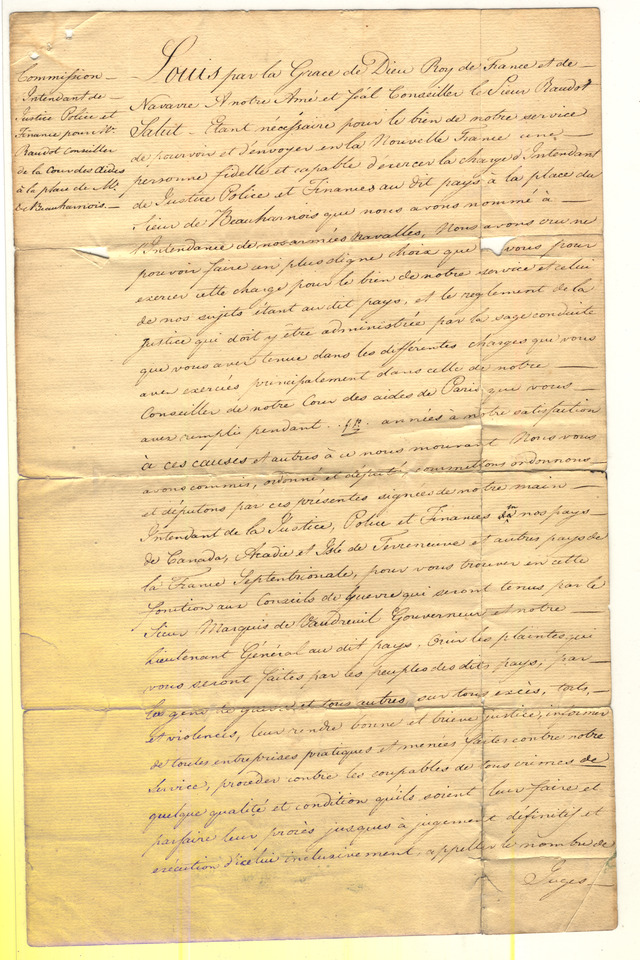 Commission
Intendant de
Justice Police et
Finance pour Mr.
Raudot conseiller
de la Cour des aides
à la place de Mr.
de Beauharnois.
Louis par la Grace de Dieu Roy de France et de
Navarre A notre Amé et féal Conseiller le Sieur Raudot
Salut Etant nécéssaire pour le bien de notre service
de pourvoir et d'envoyer en la Nouvelle France une
personne fidelle et capable d'éxercer la charge d'Intendant
de Justice Police et Finances au dit pays à la place du
Sieur de Beauharnois que nous avons nommé à
l'Intendance de nos armées navalles, Nous avons cru ne
pouvoir faire un plus digne choix que vous pour
exercer cette charge pour le bien de notre service et celui
de nos sujets étant au dit pays, et le reglement de la
justice qui doit y être administrée par la sage conduite
que vous avez tenue dans les différentes charges que vous
avez exercées principalement dans celle de notre
Conseiller de notre Cour des aides de Paris que vous
avez remplie pendant années à notre satisfaction
à ces causes et autres à ce nous mouvant Nous vous
avons commis, ordonné et député, commettons ordonnons
et députons par ces présentes signées de notre main
Intendant de la Justice, Police et Finances en nos pays
de Canada, Acadie et Isle de Terreneuve et autres pays de
la France Septentrionale, pour vous trouver en cette
fonction aux Conseils de guerre qui seront tenus par le
Sieur Marquis de Vaudreuil Gouverneur et notre
lieutenant Général au dit pays, Ouir les plaintes qui
vous seront faites par les peuples des dits pays, par
les gens de guerre et tous autres sur tous excès, torts,
et violences, leur rendre bonne et brieve justice, informer
de toutes entreprises pratiques et menées faites contre notre
Service, procéder contre les coupables de tous crimes de
quelque qualité et condition qu'ils soient leur faire et
parfaire leur procès jusques à jugement définitif et
exécution d'icélui inclusivement, appeller le nombre de
Juges